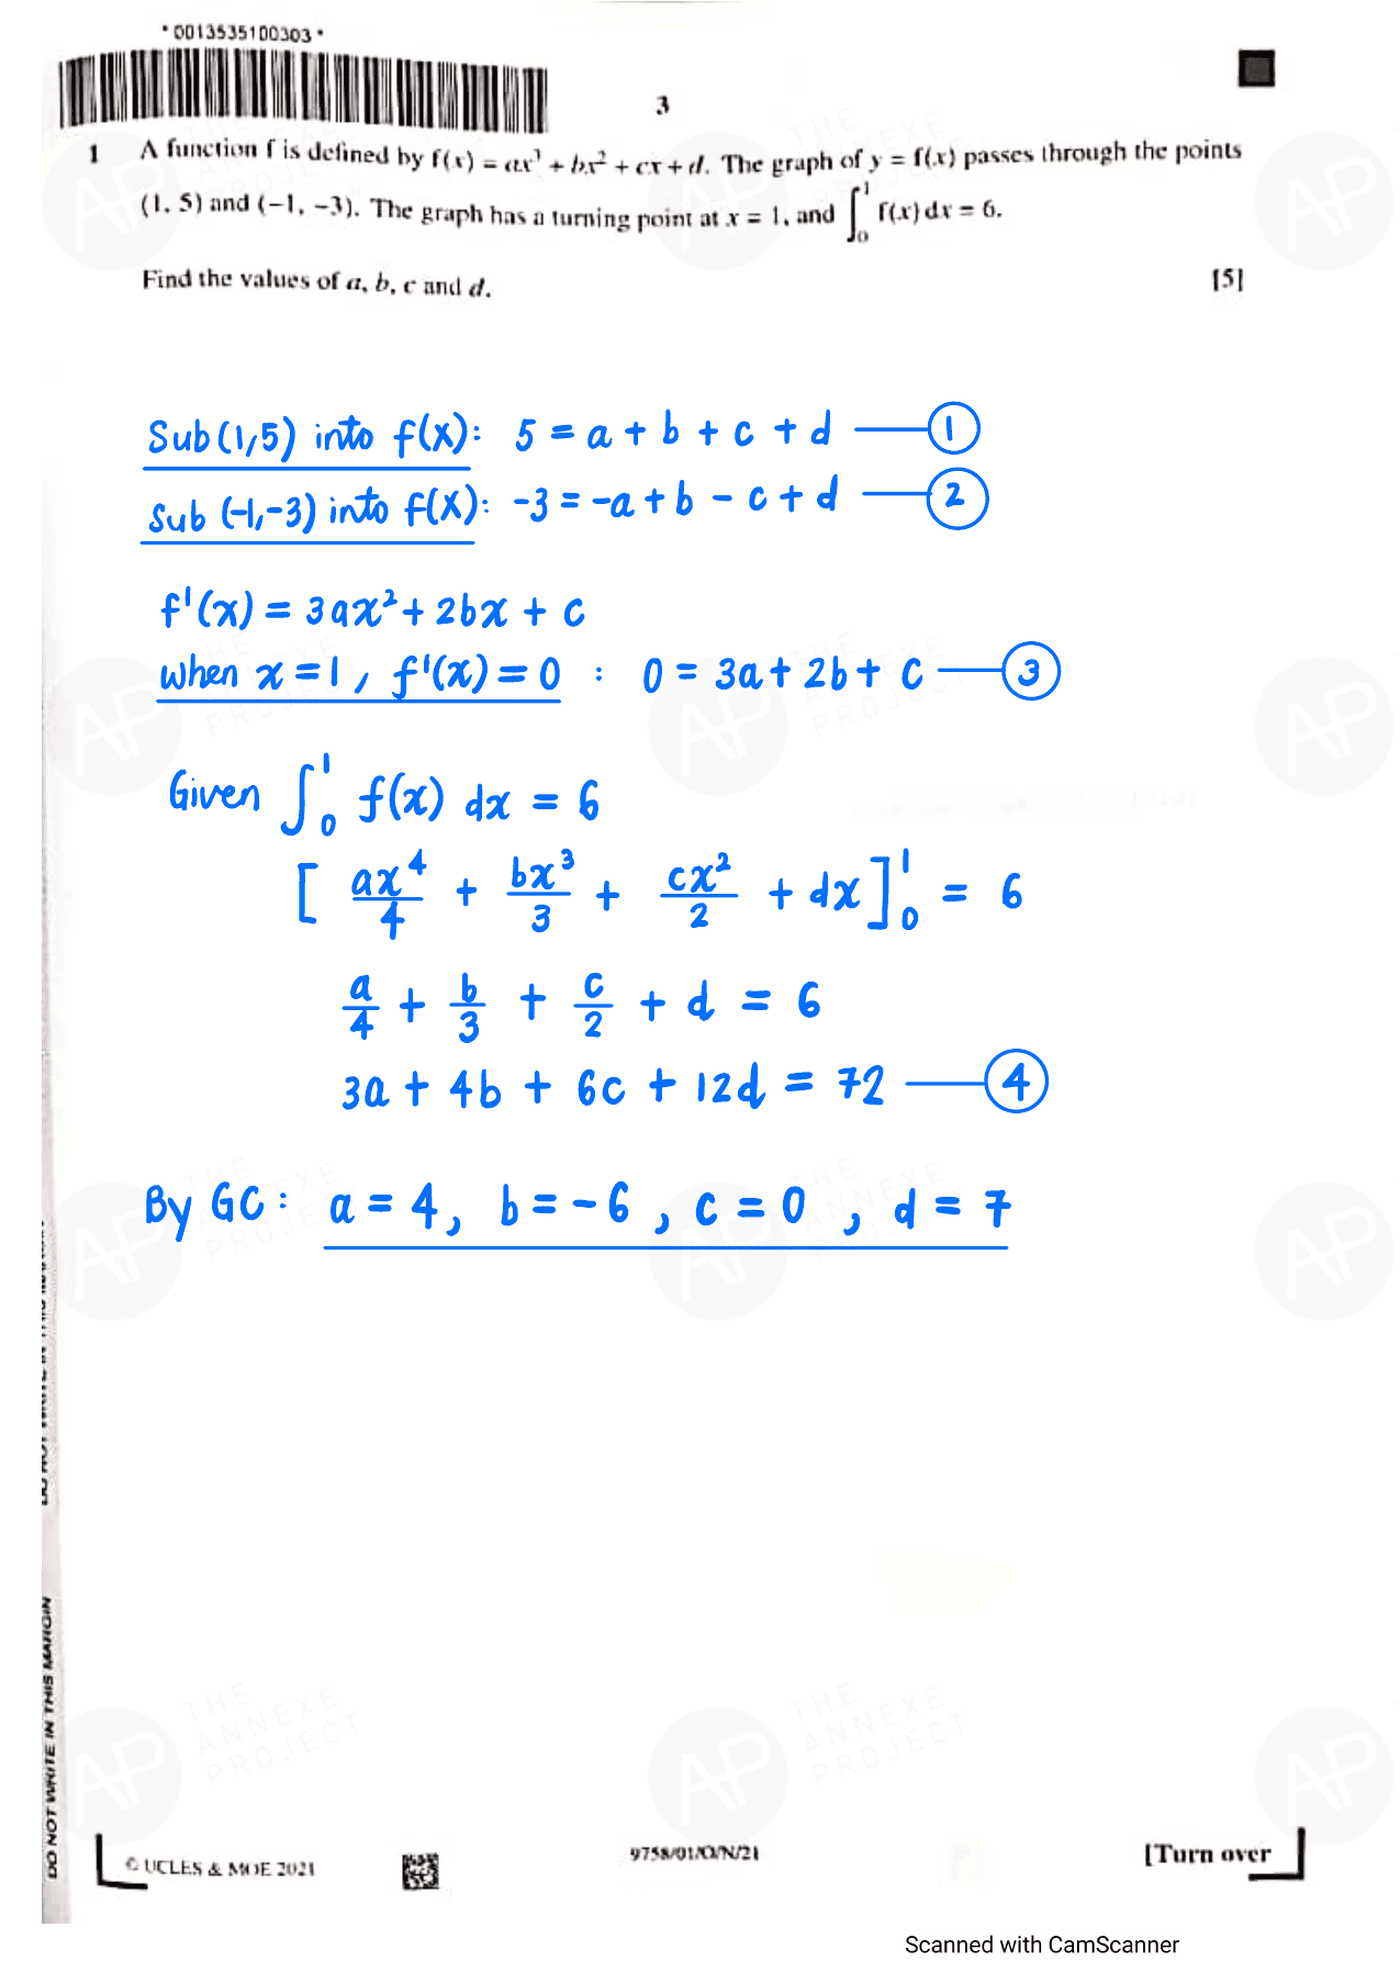 *0013535100303*
3
1 A function f is defined by f(x) = ax³ + bx² + cx + d. The graph of y = f(x) passes through the points
(1, 5) and (−1, −3). The graph has a turning point at x = 1, and ∫₀¹ f(x) dx = 6.
Find the values of a, b, c and d. [5]
Sub (1,5) into f(x): 5 = a + b + c + d —— ①
Sub (-1,-3) into f(x): -3 = -a + b - c + d —— ②
f'(x) = 3ax² + 2bx + c
when x = 1, f'(x) = 0 : 0 = 3a + 2b + c —— ③
Given ∫₀¹ f(x) dx = 6
[ax⁴/4 + bx³/3 + cx²/2 + dx]₀¹ = 6
a/4 + b/3 + c/2 + d = 6
3a + 4b + 6c + 12d = 72 —— ④
By GC: a = 4, b = -6, c = 0, d = 7
DO NOT WRITE IN THIS MARGIN
THE ANNEXE PROJECT
AP
© UCLES & MOE 2021
9758/01/O/N/21
[Turn over
Scanned with CamScanner